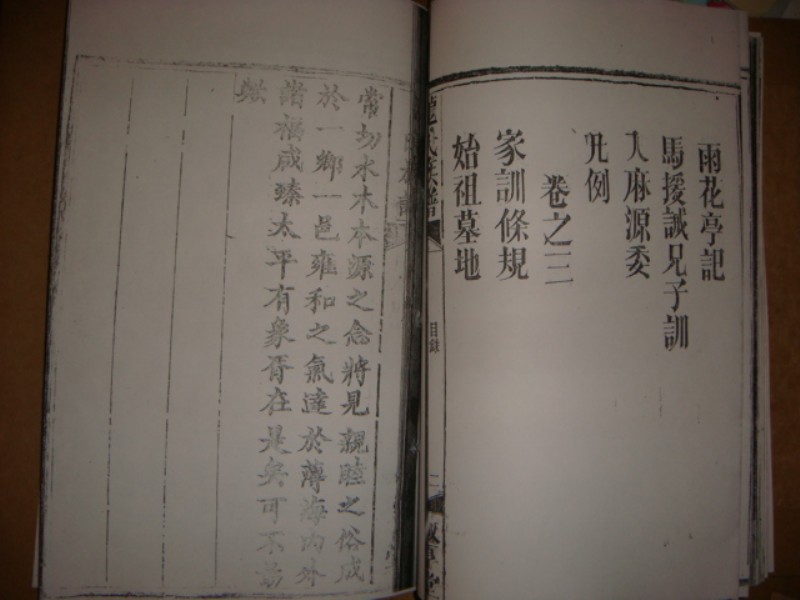 雨花亭記
馬援誡兄子訓
入麻源委
凡例
卷之三
家訓條規
始祖墓地
氏族譜
目錄
二
敦
堂
常切水木本源之念將見親睦之俗成
於一鄉一邑雍和之氣達於薄海內外
諸福咸臻太平有象胥在是矣可不勗
歟